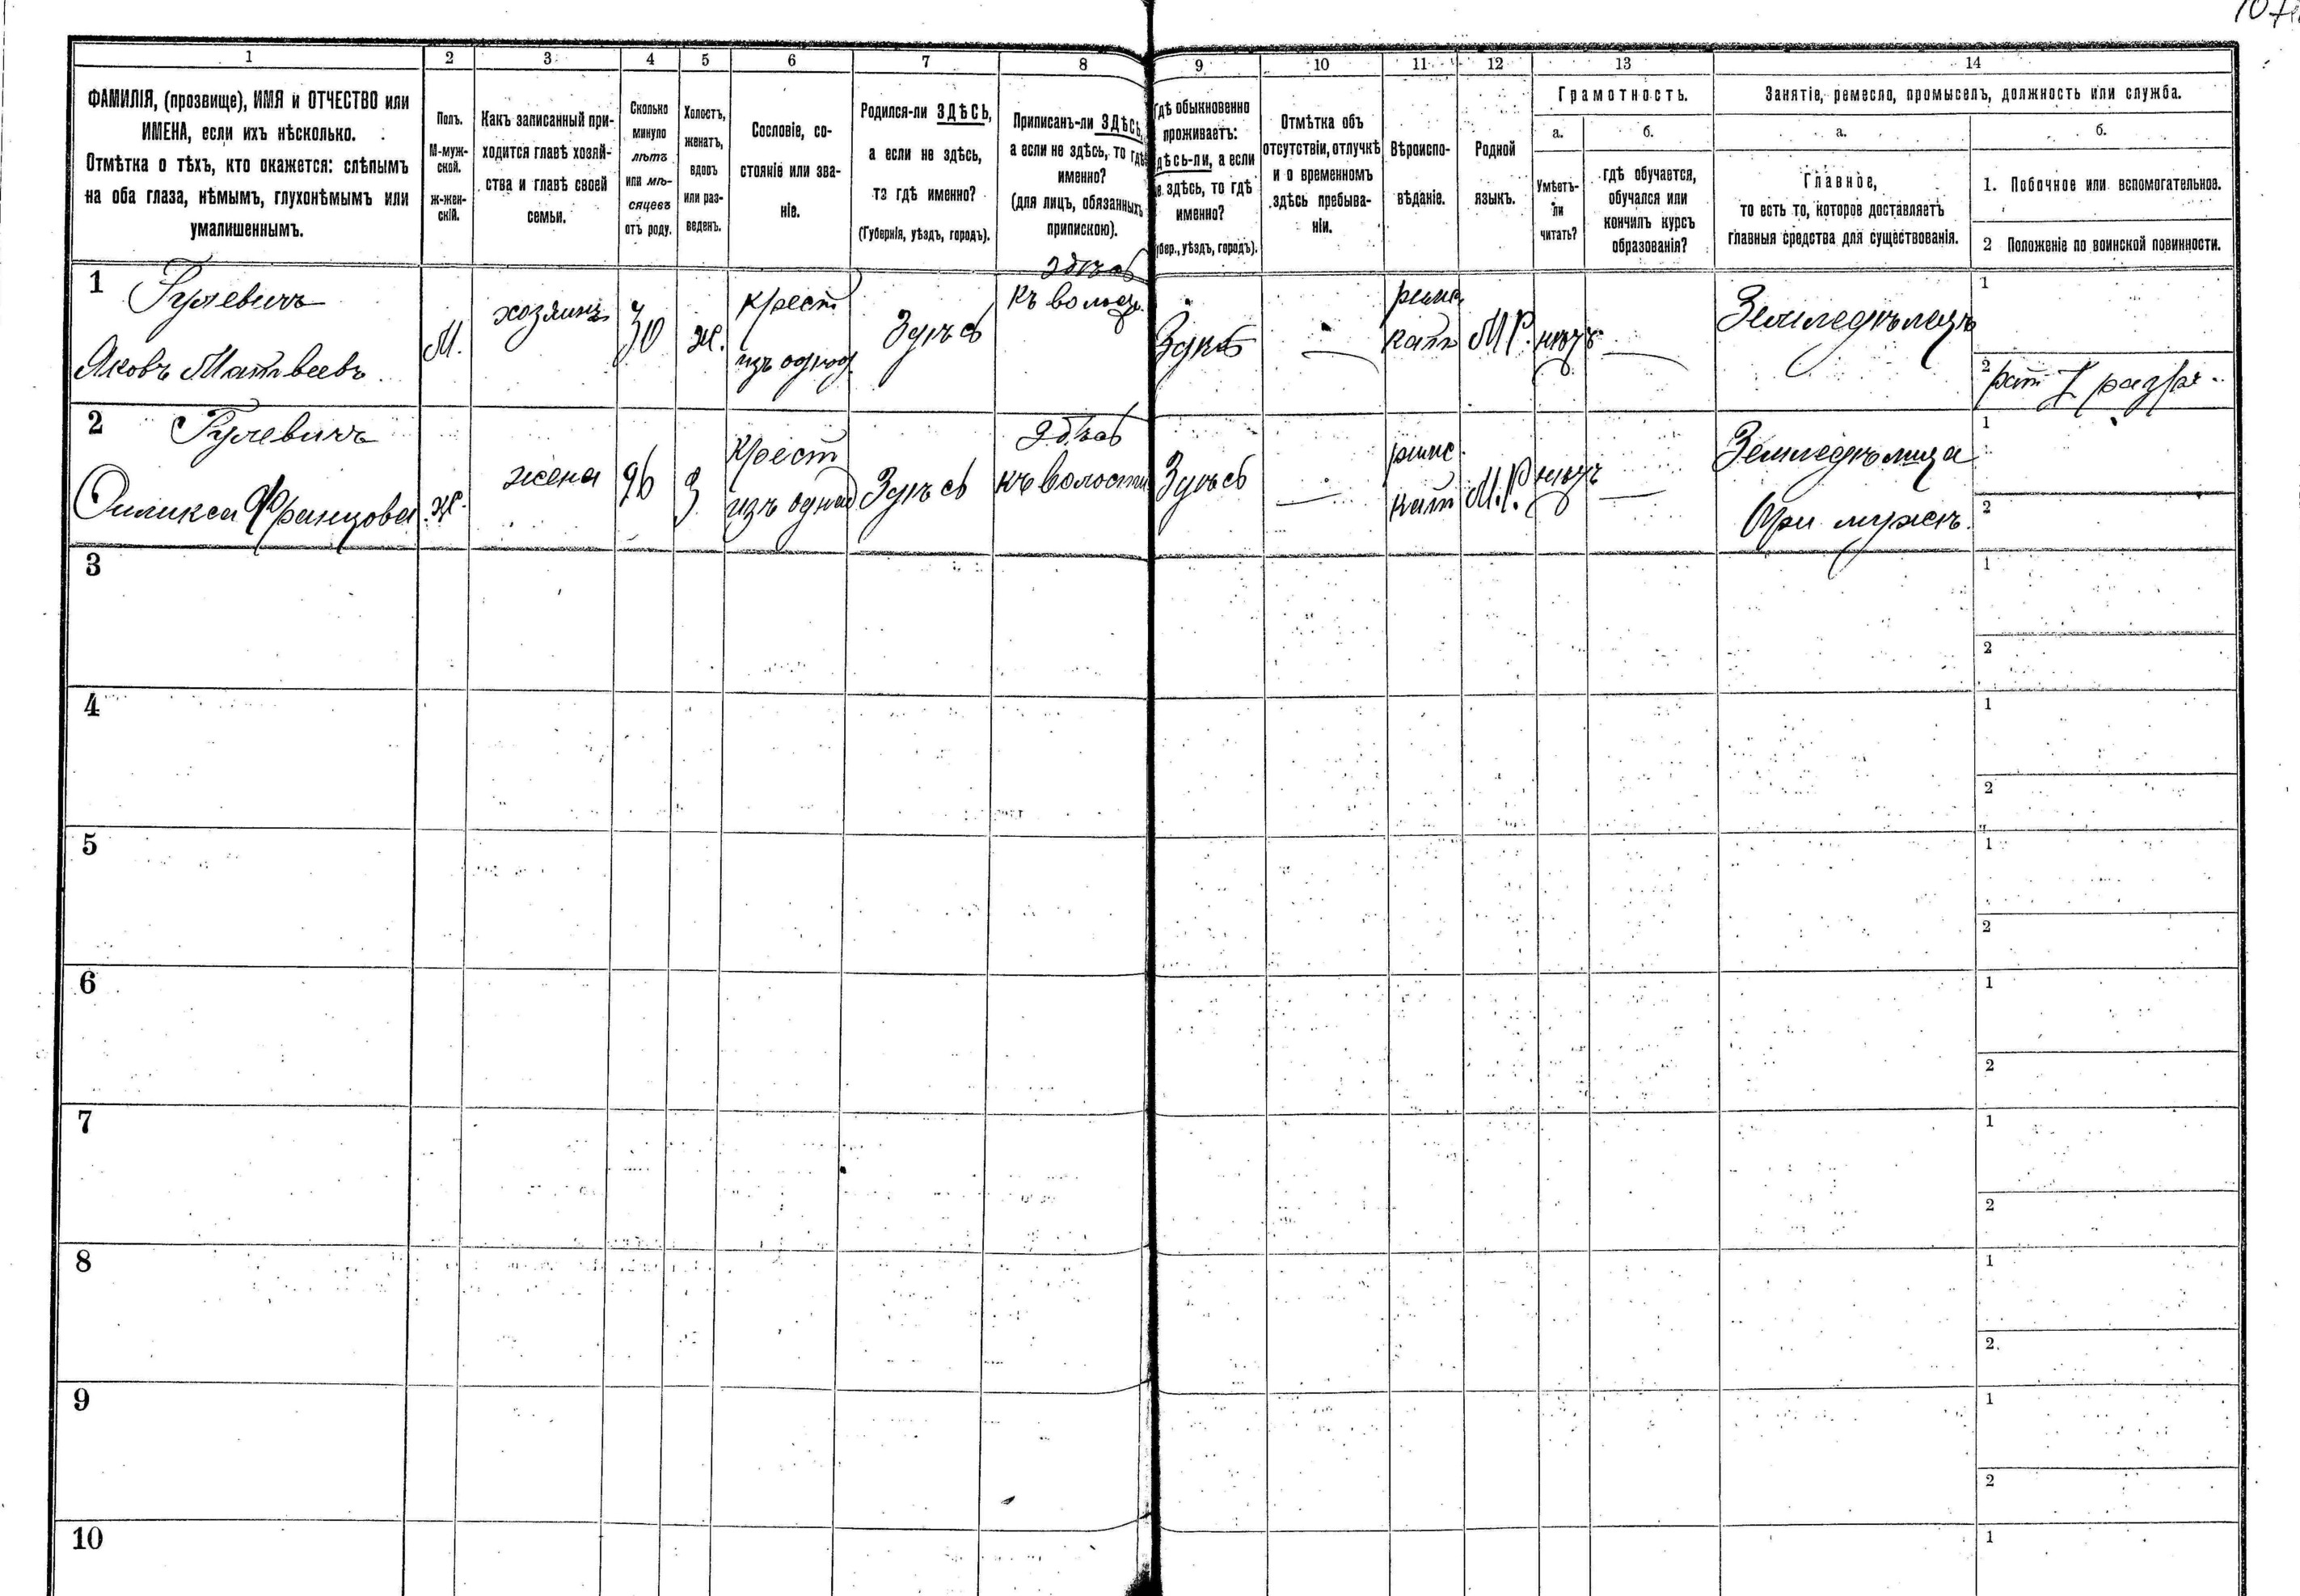 1 2 3 4 5 6 7 8 9 10 11 12 13 14
ФАМИЛІЯ, (прозвище), ИМЯ и ОТЧЕСТВО или
ИМЕНА, если ихъ нѣсколько.
Отмѣтка о тѣхъ, кто окажется: слѣпымъ
на оба глаза, нѣмымъ, глухонѣмымъ или
умалишеннымъ.
Полъ.
М-муж-
ской.
ж-жен-
скій.
Какъ записанный при-
ходится главѣ хозяй-
ства и главѣ своей
семьи.
Сколько
минуло
лѣтъ
или мѣ-
сяцевъ
отъ роду.
Холостъ,
женатъ,
вдовъ
или раз-
веденъ.
Сословіе, со-
стояніе или зва-
ніе.
Родился-ли ЗДѢСЬ,
а если не здѣсь,
то гдѣ именно?
(Губернія, уѣздъ, городъ).
Приписанъ-ли ЗДѢСЬ,
а если не здѣсь, то гдѣ
именно?
(для лицъ, обязанныхъ
припискою).
Гдѣ обыкновенно
проживаетъ:
здѣсь-ли, а если
не здѣсь, то гдѣ
именно?
(Губер., уѣздъ, городъ).
Отмѣтка объ
отсутствіи, отлучкѣ
и о временномъ
здѣсь пребыва-
ніи.
Вѣроиспо-
вѣданіе.
Родной
языкъ.
Грамотность.
а.
Умѣетъ-
ли
читать?
б.
гдѣ обучается,
обучался или
кончилъ курсъ
образованія?
Занятіе, ремесло, промыселъ, должность или служба.
а.
Главное,
то есть то, которое доставляетъ
главныя средства для существованія.
б.
1. Побочное или вспомогательное.
2 Положеніе по воинской повинности.
1
Яковъ Матвеевъ
М.
хозяинъ
30
ж.
крест
изъ однод
Здѣсь
здѣсь
къ волос
Здѣсь
—
римс
кат
М Р.
нѣтъ
—
Земледѣлецъ
1
2 рат I разр.
2
Францова
ж.
жена
26
з
Крест
изъ однод
Здѣсь
здѣсь
къ волости
Здѣсь
—
римс.
кат
М.Р.
нѣтъ
—
Земледѣлица
при мужѣ.
1
2
3
1
2
4
1
2
5
1
2
6
1
2
7
1
2
8
1
2
9
1
2
10
1